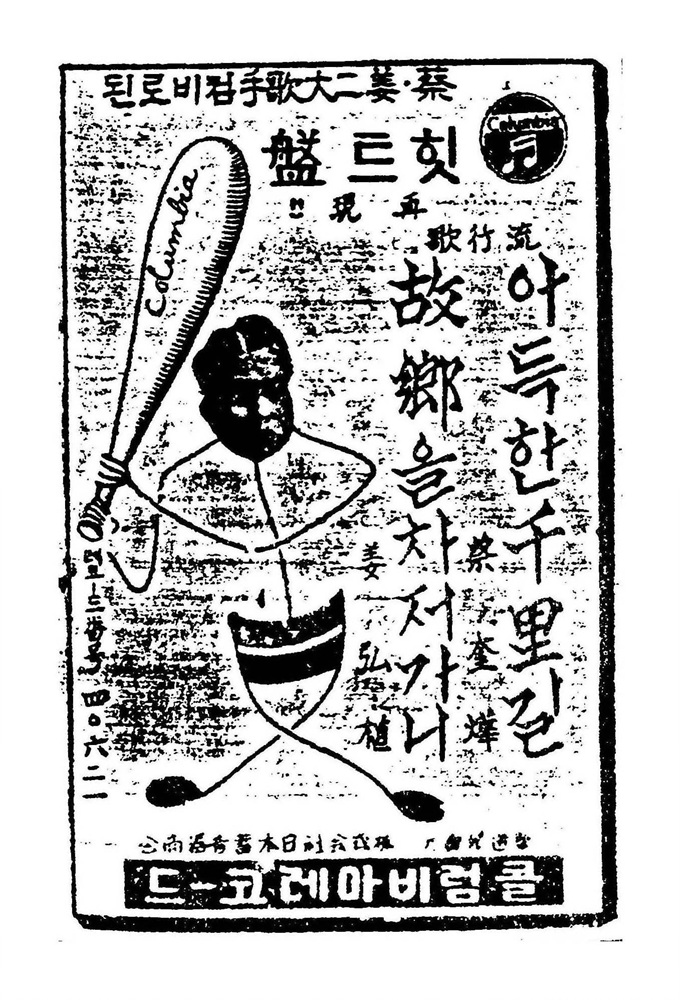 蔡·姜二大歌手컴비로된
Columbia
힛트盤
再現!!
流行歌
아득한千里길
蔡奎燁
故鄕을차저가니
姜弘植
Columbia
番号四〇六二一
株式会社日本蓄音器商会
콜럼비아레코-드